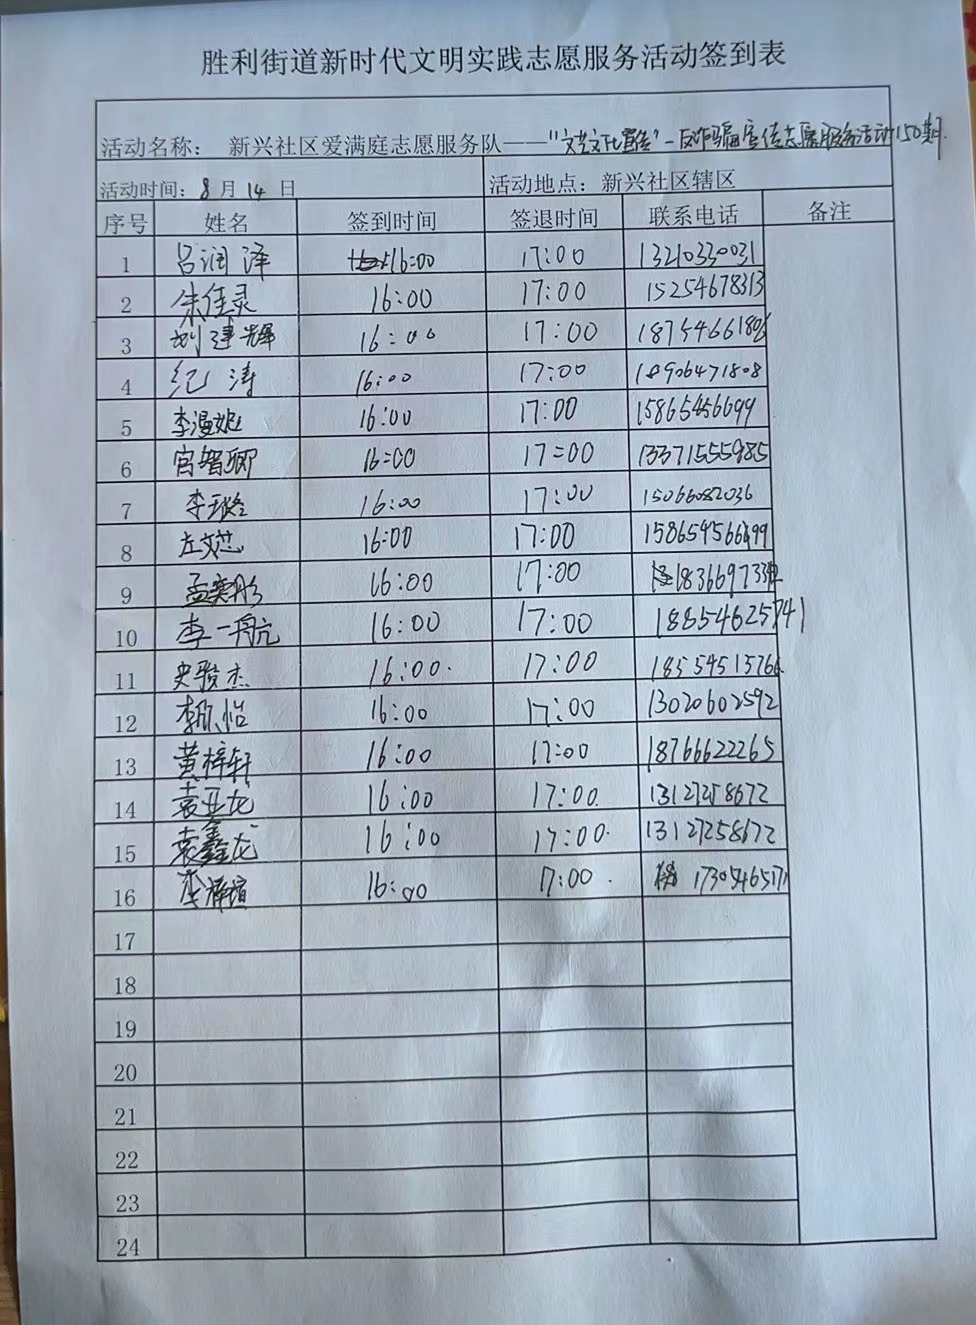 胜利街道新时代文明实践志愿服务活动签到表
活动名称： 新兴社区爱满庭志愿服务队——"文艺文化宣传"-反诈骗宣传志愿服务活动150期.
活动时间：8月14日 活动地点：新兴社区辖区
序号 姓名 签到时间 签退时间 联系电话 备注
1 吕润泽 16:00 17:00 13210330031
2 朱佳灵 16:00 17:00 15254678313
3 刘建辉 16:00 17:00 1875466180
4 纪涛 16:00 17:00 18906471808
5 李漫妮 16:00 17:00 15865456699
6 宫智卿 16:00 17:00 13371555985
7 李璐 16:00 17:00 15066082036
8 左文芯 16:00 17:00
9 孟奕彤 16:00 17:00
10 李一航 16:00 17:00 18854625741
11 史骏杰 16:00. 17:00 18554515766
12 李欣怡 16:00 17:00 13020602592
13 黄梓轩 16:00 17:00 18766622265
14 袁亚龙 16:00 17:00. 13127258672
15 袁鑫龙 16:00 17:00. 13127258672
16 李 16:00 17:00. 17305465171
17
18
19
20
21
22
23
24